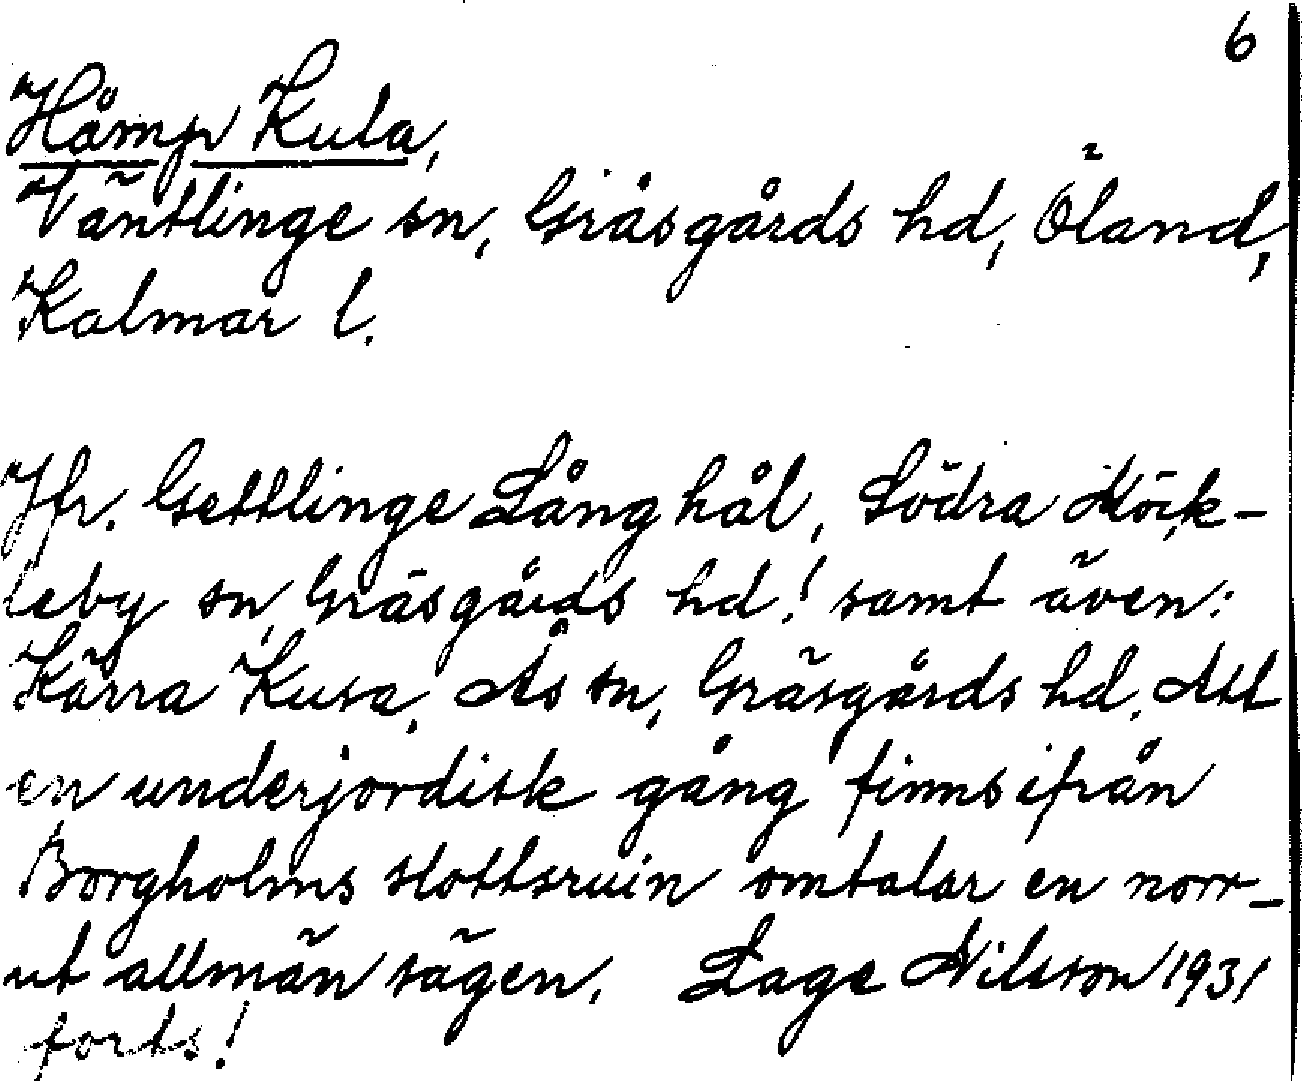 6
Håmp Kula,
Väntlinge sn, Gräsgårds hd, Öland,
Kalmar l.
Jfr. Gettlinge Långhål, Södra Möck-
leby sn, Gräsgårds hd! samt även:
Kärra Kusa, Ås sn, Gräsgårds hd. Att
en underjordisk gång finns ifrån
Borgholms slottsruin omtalar en norr-
ut allmän sägen. Lage Nilsson 1931
forts!